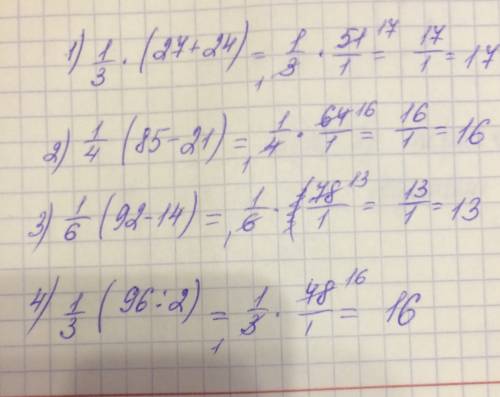 1) 1/3 · (27+24) = 1/3 · 51/1 = 17/1 = 17
2) 1/4 (85-21) = 1/4 · 64/1 = 16/1 = 16
3) 1/6 (92-14) = 1/6 · 78/1 = 13/1 = 13
4) 1/3 (96:2) = 1/3 · 48/1 = 16